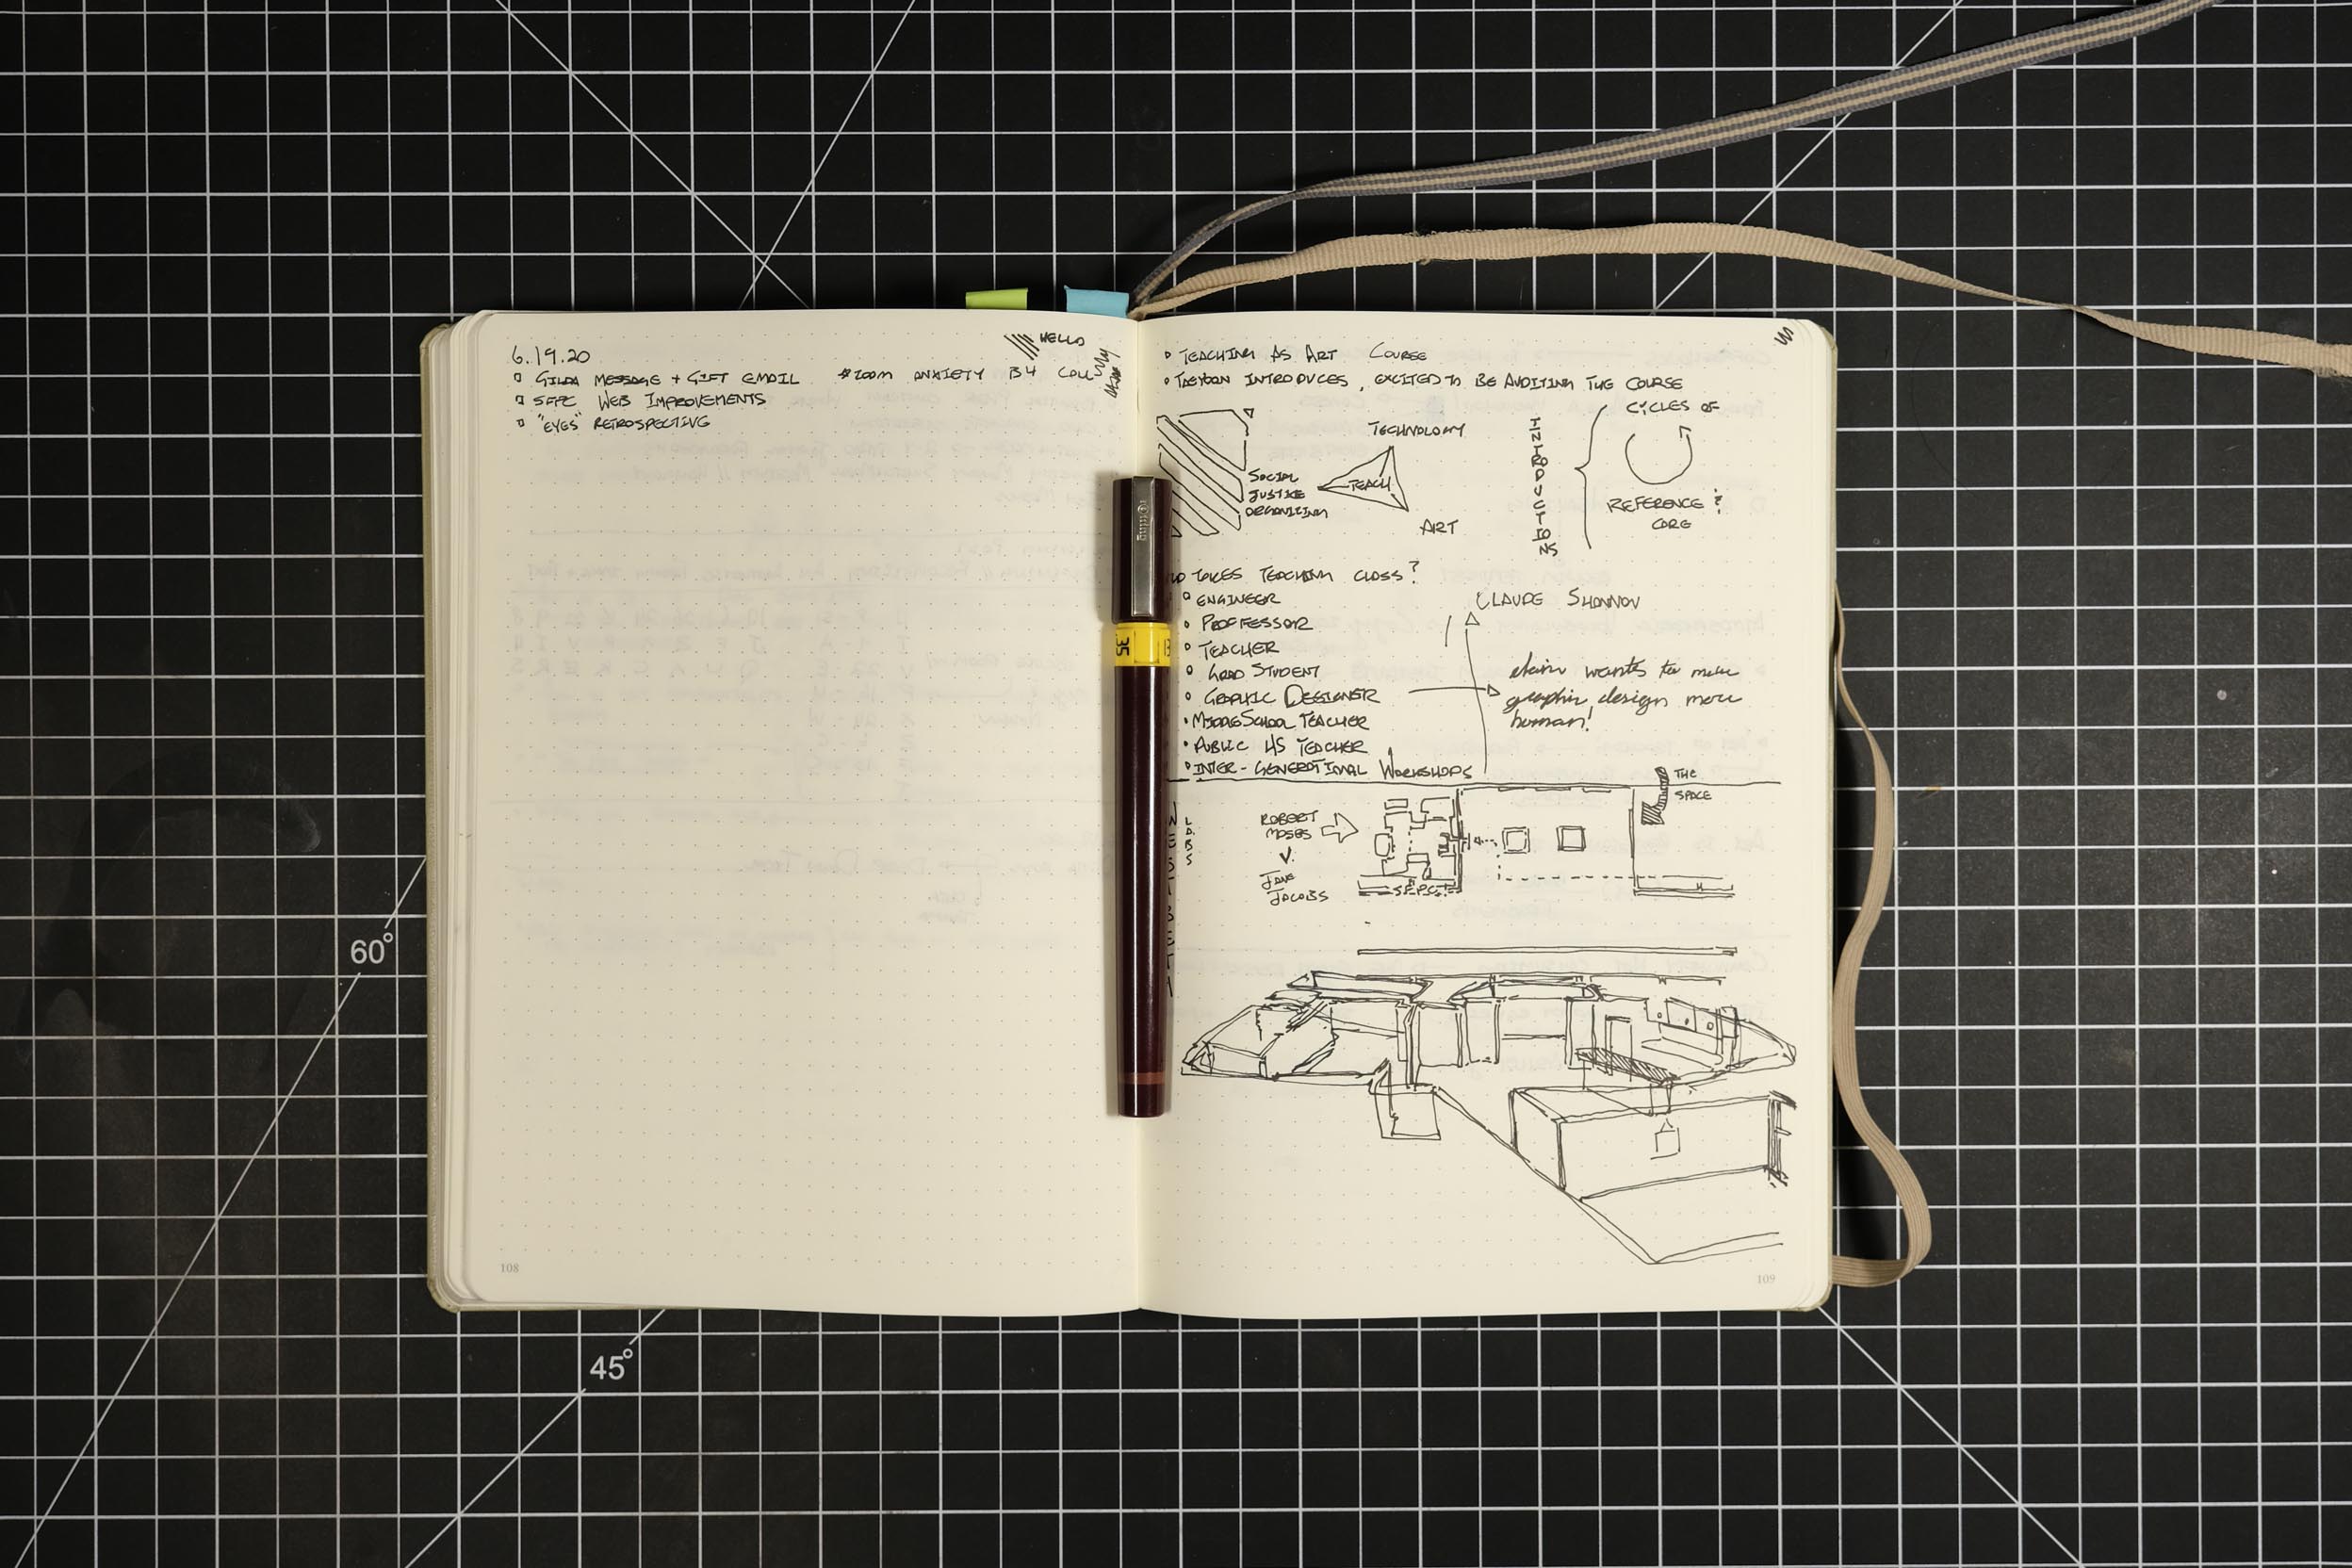 6.19.20
HELLO
GILDA MESSAGE + GIFT EMAIL
ZOOM ANXIETY B4 CALL
SFPC WEB IMPROVEMENTS
"EYES" RETROSPECTIVE
108
TEACHING AS ART COURSE
TAEYOON INTRODUCES, EXCITED TO BE AUDITING THE COURSE
SOCIAL
JUSTICE
ORGANIZING
TECHNOLOGY
TEACH
ART
INTRODUCTIONS
CYCLES OF
REFERENCE ?
CARE
TAKES TEACHING CLASS?
ENGINEER
PROFFESSOR
TEACHER
GRAD STUDENT
GRAPHIC DESIGNER
MIDDLE SCHOOL TEACHER
PUBLIC HS TEACHER
INTER-GENERATIONAL WORKSHOPS
CLAUDE SHANNON
wants to make
graphic design more
human!
LABS
ROBERT
MOSES
V.
JANE
JACOBS
SFPC
THE
SPACE
109
rOtring
35
60°
45°